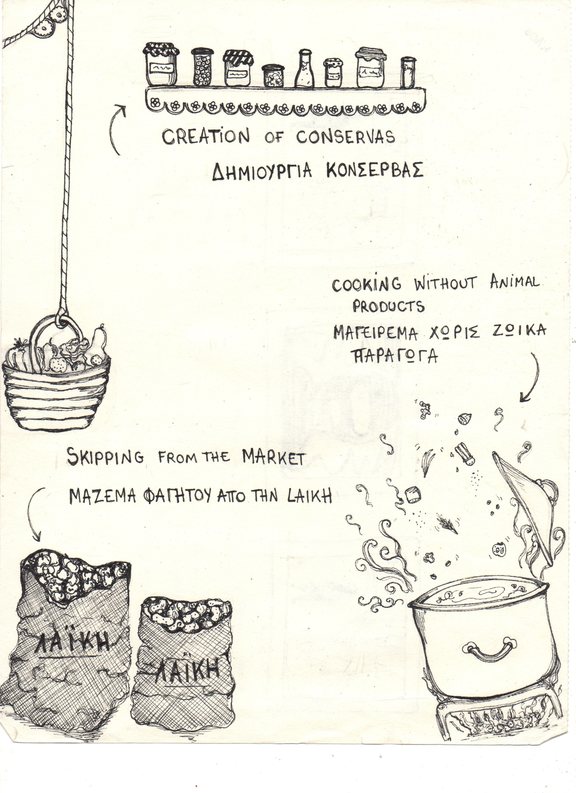 CREATION OF CONSERVAS
ΔΗΜΙΟΥΡΓΙΑ ΚΟΝΣΕΡΒΑΣ
COOKING WITHOUT ANIMAL
PRODUCTS
ΜΑΓΕΙΡΕΜΑ ΧΩΡΙΣ ΖΩΙΚΑ
ΠΑΡΑΓΩΓΑ
SKIPPING FROM THE MARKET
ΜΑΖΕΜΑ ΦΑΓΗΤΟΥ ΑΠΟ ΤΗΝ LΑΙΚΗ
ΛΑΪΚΗ
ΛΑΪΚΗ